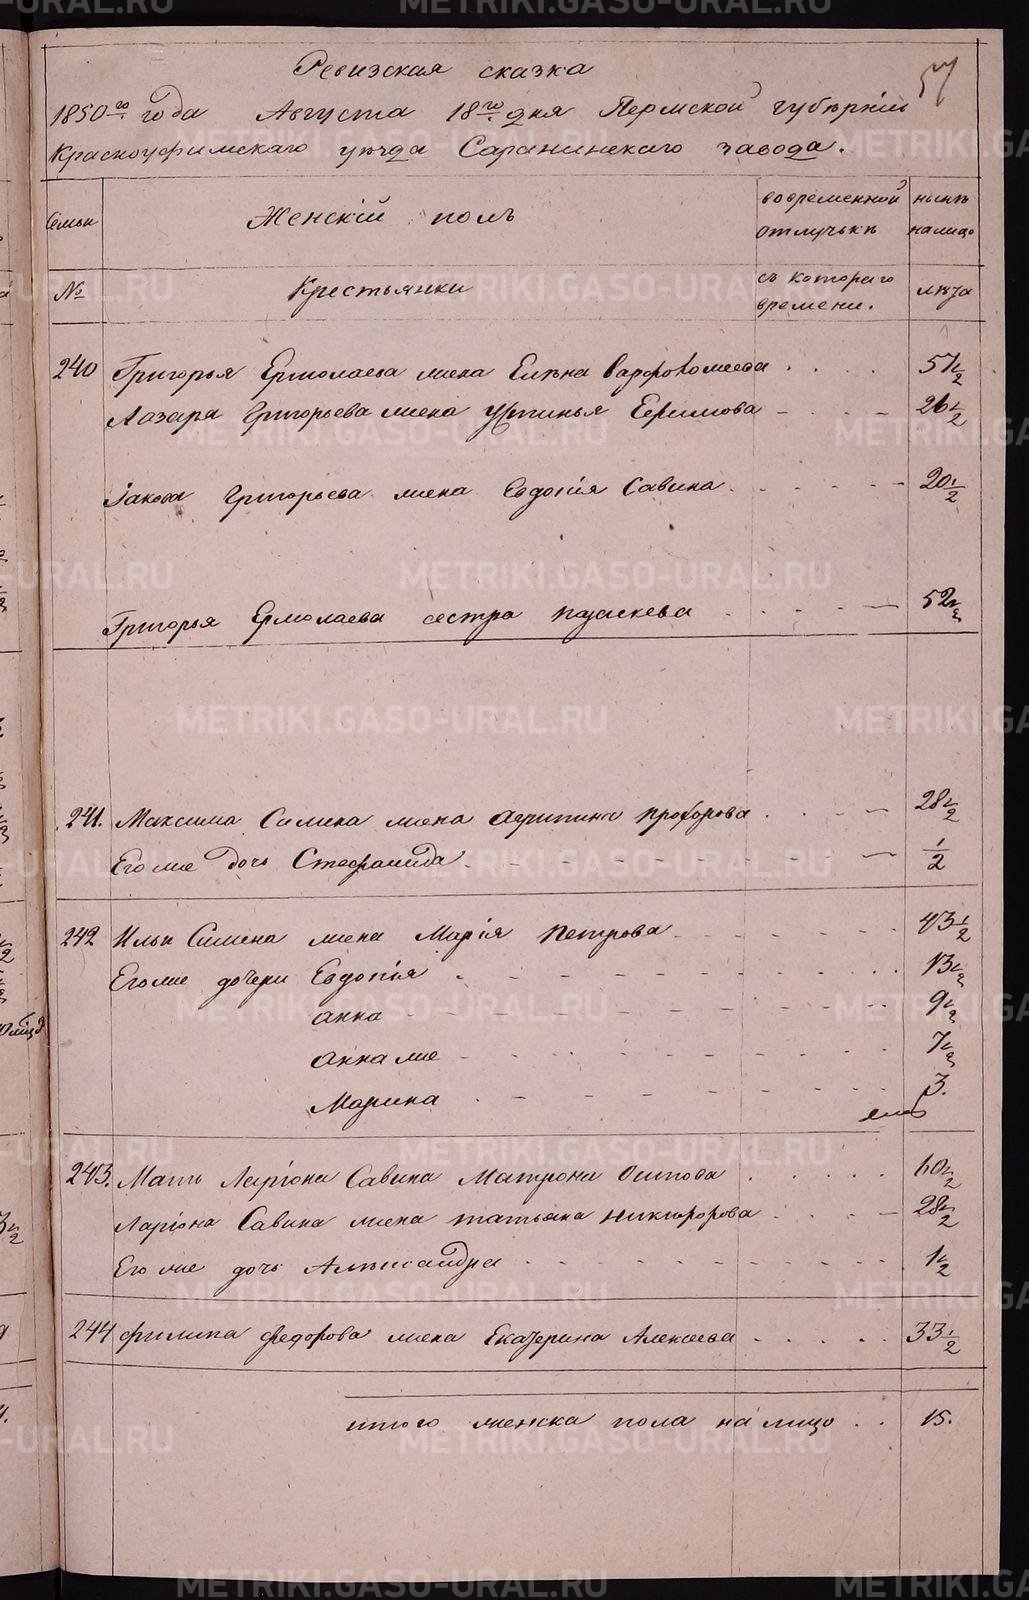 57
Ревизская сказка
1850го года Августа 18го дня Пермской губѣрніи
Красноуфимскаго уѣзда Саранинскаго завода.
Семьи
Женскій полъ
вовременной отлучькѣ
нынѣ налицо
№
Крестьянки
съ котораго времени.
лѣта
240 Григорья Ермолаева жена Елѣна Варфоломеева 57 1/2
Лазаря Григорьева жена Устинья Ефимова 26 1/2
Іакова Григорьева жена Евдокія Савина 20 1/2
Григорья Ермолаева сестра 52 1/2
241. Максима Силина жена Агрипина Прохорова 28 1/2
Его же дочь Стефанида 1/2
242 Ильи Силина жена Марія Петрова 43 1/2
Его же дочери Евдокія 13 1/2
Анна 9 1/2
Анна же 7 1/2
Марина 3.
243. Мать Ларіона Савина Матрона Осипова 60 1/2
Ларіона Савина жена Татьяна Никифорова 28 1/2
Его же дочь Александра 1 1/2
244 Филипа Федорова жена Екатерина Алексеева 33 1/2
итого женска пола на лицо 15.
METRIKI.GASO-URAL.RU